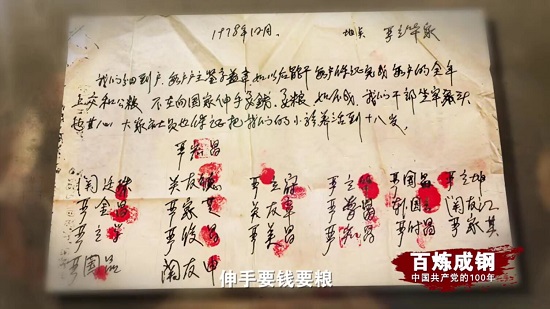 1978年12月. 地点 严立华家
我们分田到户,每户户主签字盖章,如以后能干每户保证完成每户的全年
上交和公粮.不在向国家伸手要钱要粮.如不成,我们干部坐牢杀头
也甘心,大家社员也保证把我们的小孩养活到十八岁.
严宏昌
关廷珠 关友德 严立符 严立华 严国昌 严立坤
严金昌 严家芝 关友章 严学昌 韩国云 关友江
严立学 严俊昌 严美昌 严宏昌 严付昌 严家其
严国品 关友申
伸手要钱要粮
百炼成钢
中国共产党的100年